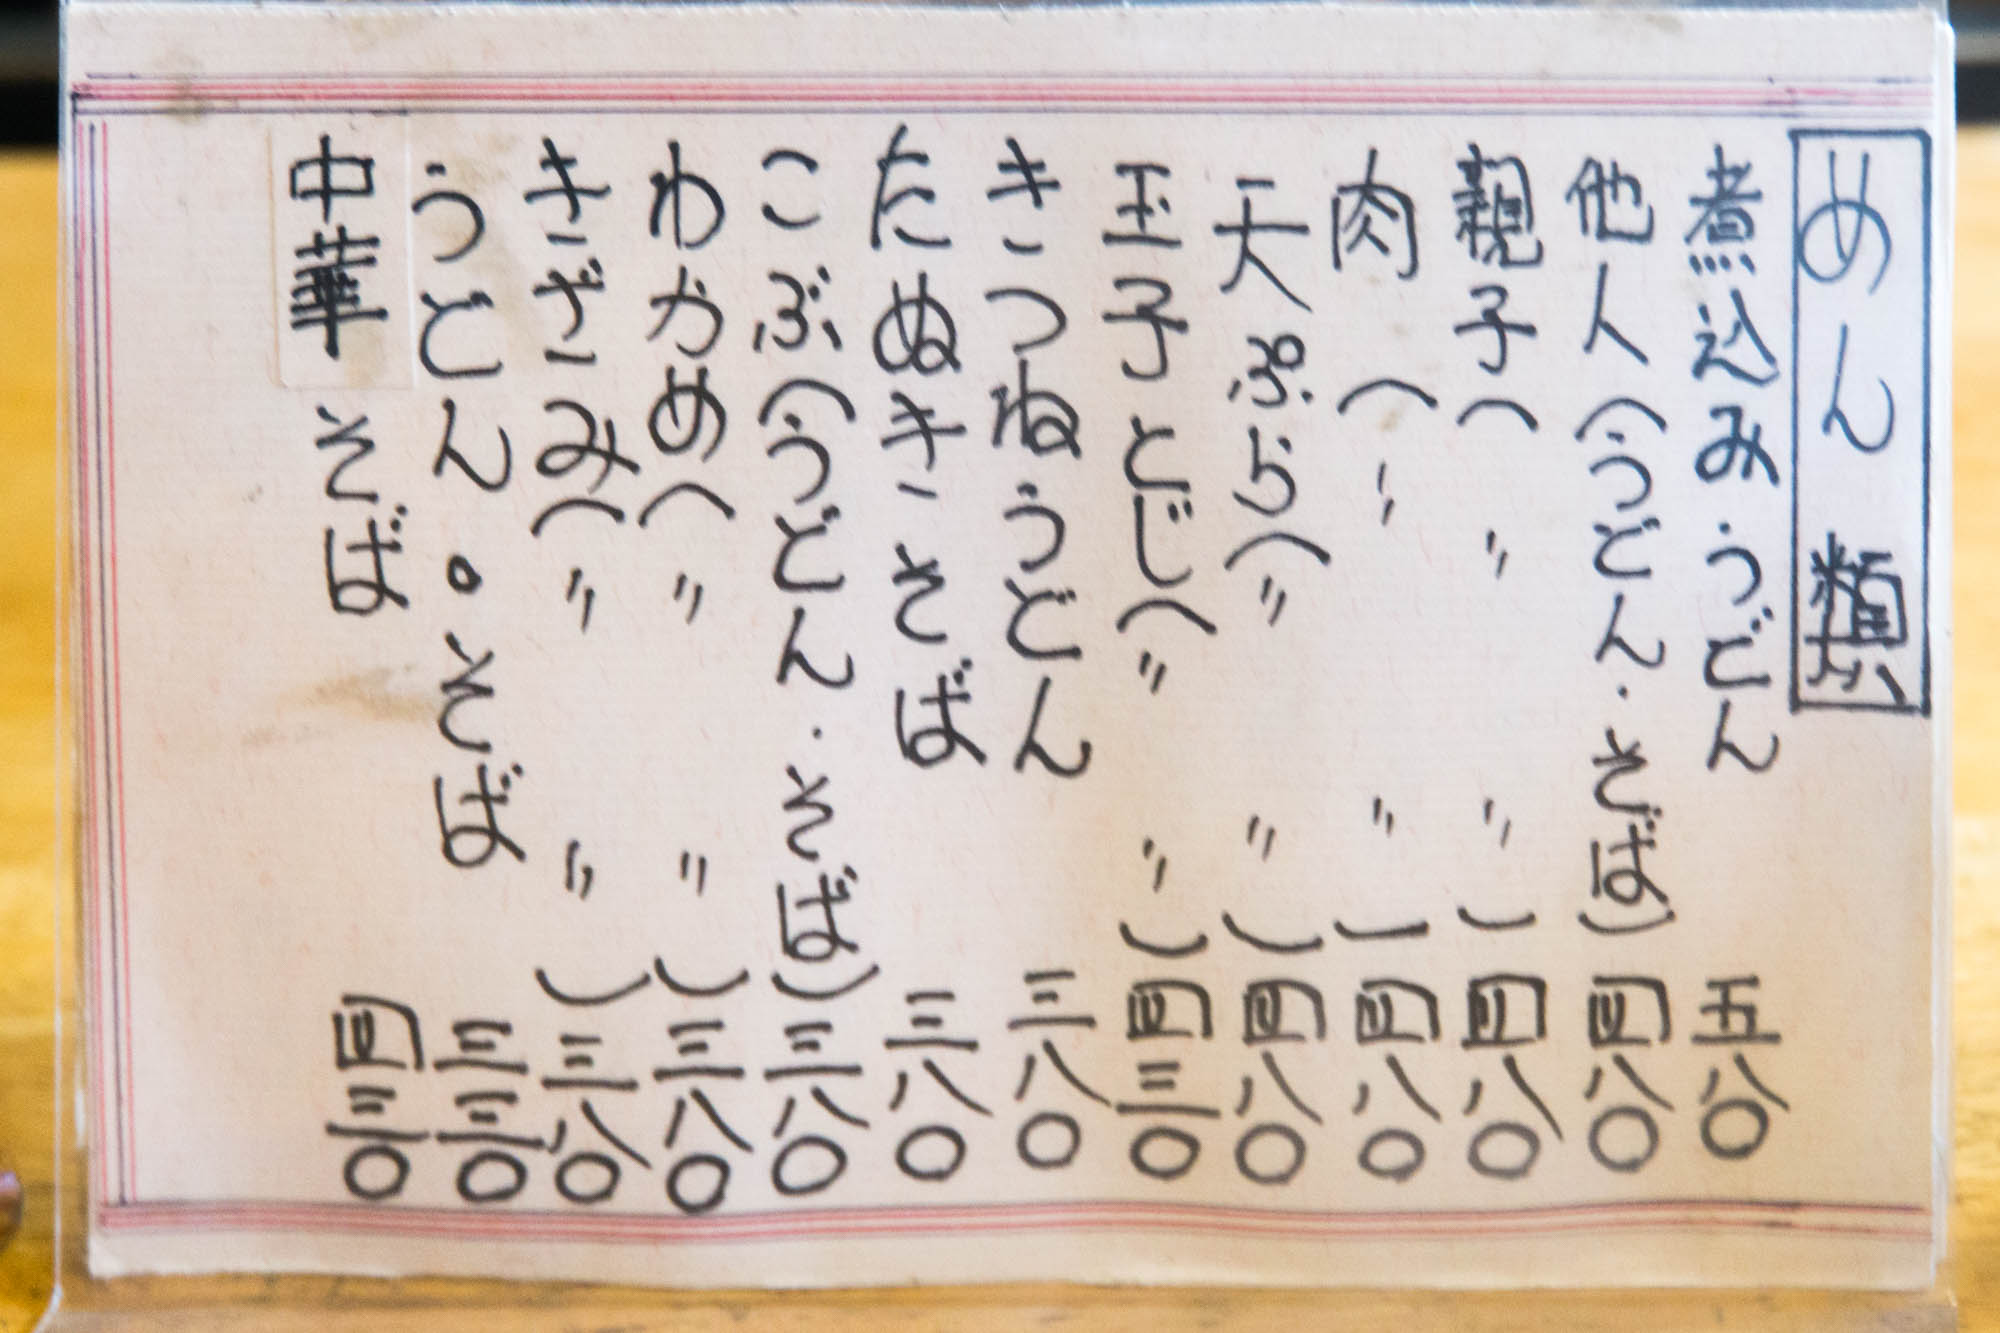 めん類
煮込み・うどん 五八〇
他人(うどん・そば) 四八〇
親子(〃 〃) 四八〇
肉(〃 〃) 四八〇
天ぷら(〃 〃) 四八〇
玉子とじ(〃 〃) 四三〇
きつねうどん 三八〇
たぬきそば 三八〇
こぶ(うどん・そば) 三八〇
わかめ(〃 〃) 三八〇
きざみ(〃 〃) 三八〇
うどん・そば 三三〇
中華そば 四三〇